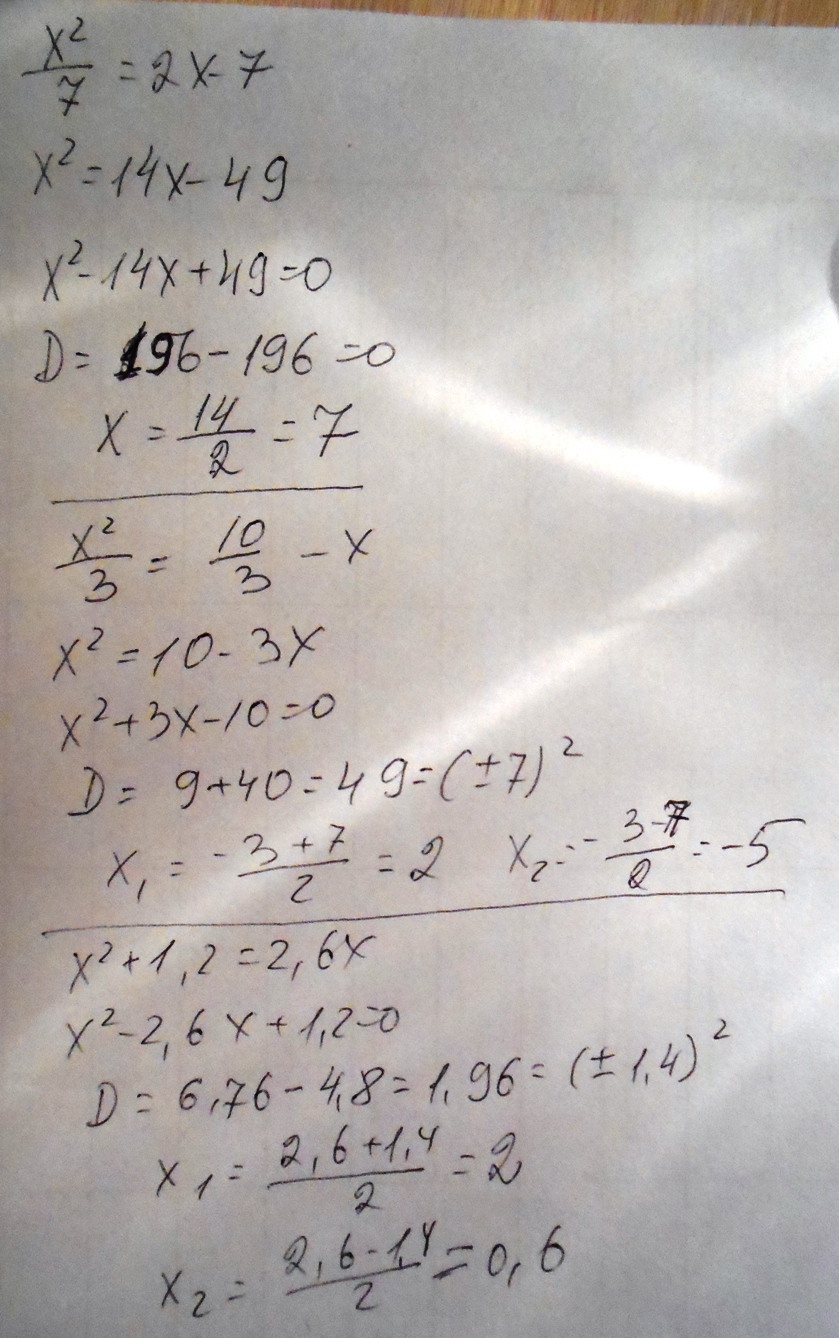 x²/7 = 2x-7
x² = 14x - 49
x² - 14x + 49 = 0
D = 196 - 196 = 0
x = 14/2 = 7
x²/3 = 10/3 - x
x² = 10 - 3x
x² + 3x - 10 = 0
D = 9 + 40 = 49 = (±7)²
x₁ = (-3 + 7)/2 = 2 x₂ = (-3 - 7)/2 = -5
x² + 1,2 = 2,6x
x² - 2,6x + 1,2 = 0
D = 6,76 - 4,8 = 1,96 = (±1,4)²
x₁ = (2,6 + 1,4)/2 = 2
x₂ = (2,6 - 1,4)/2 = 0,6